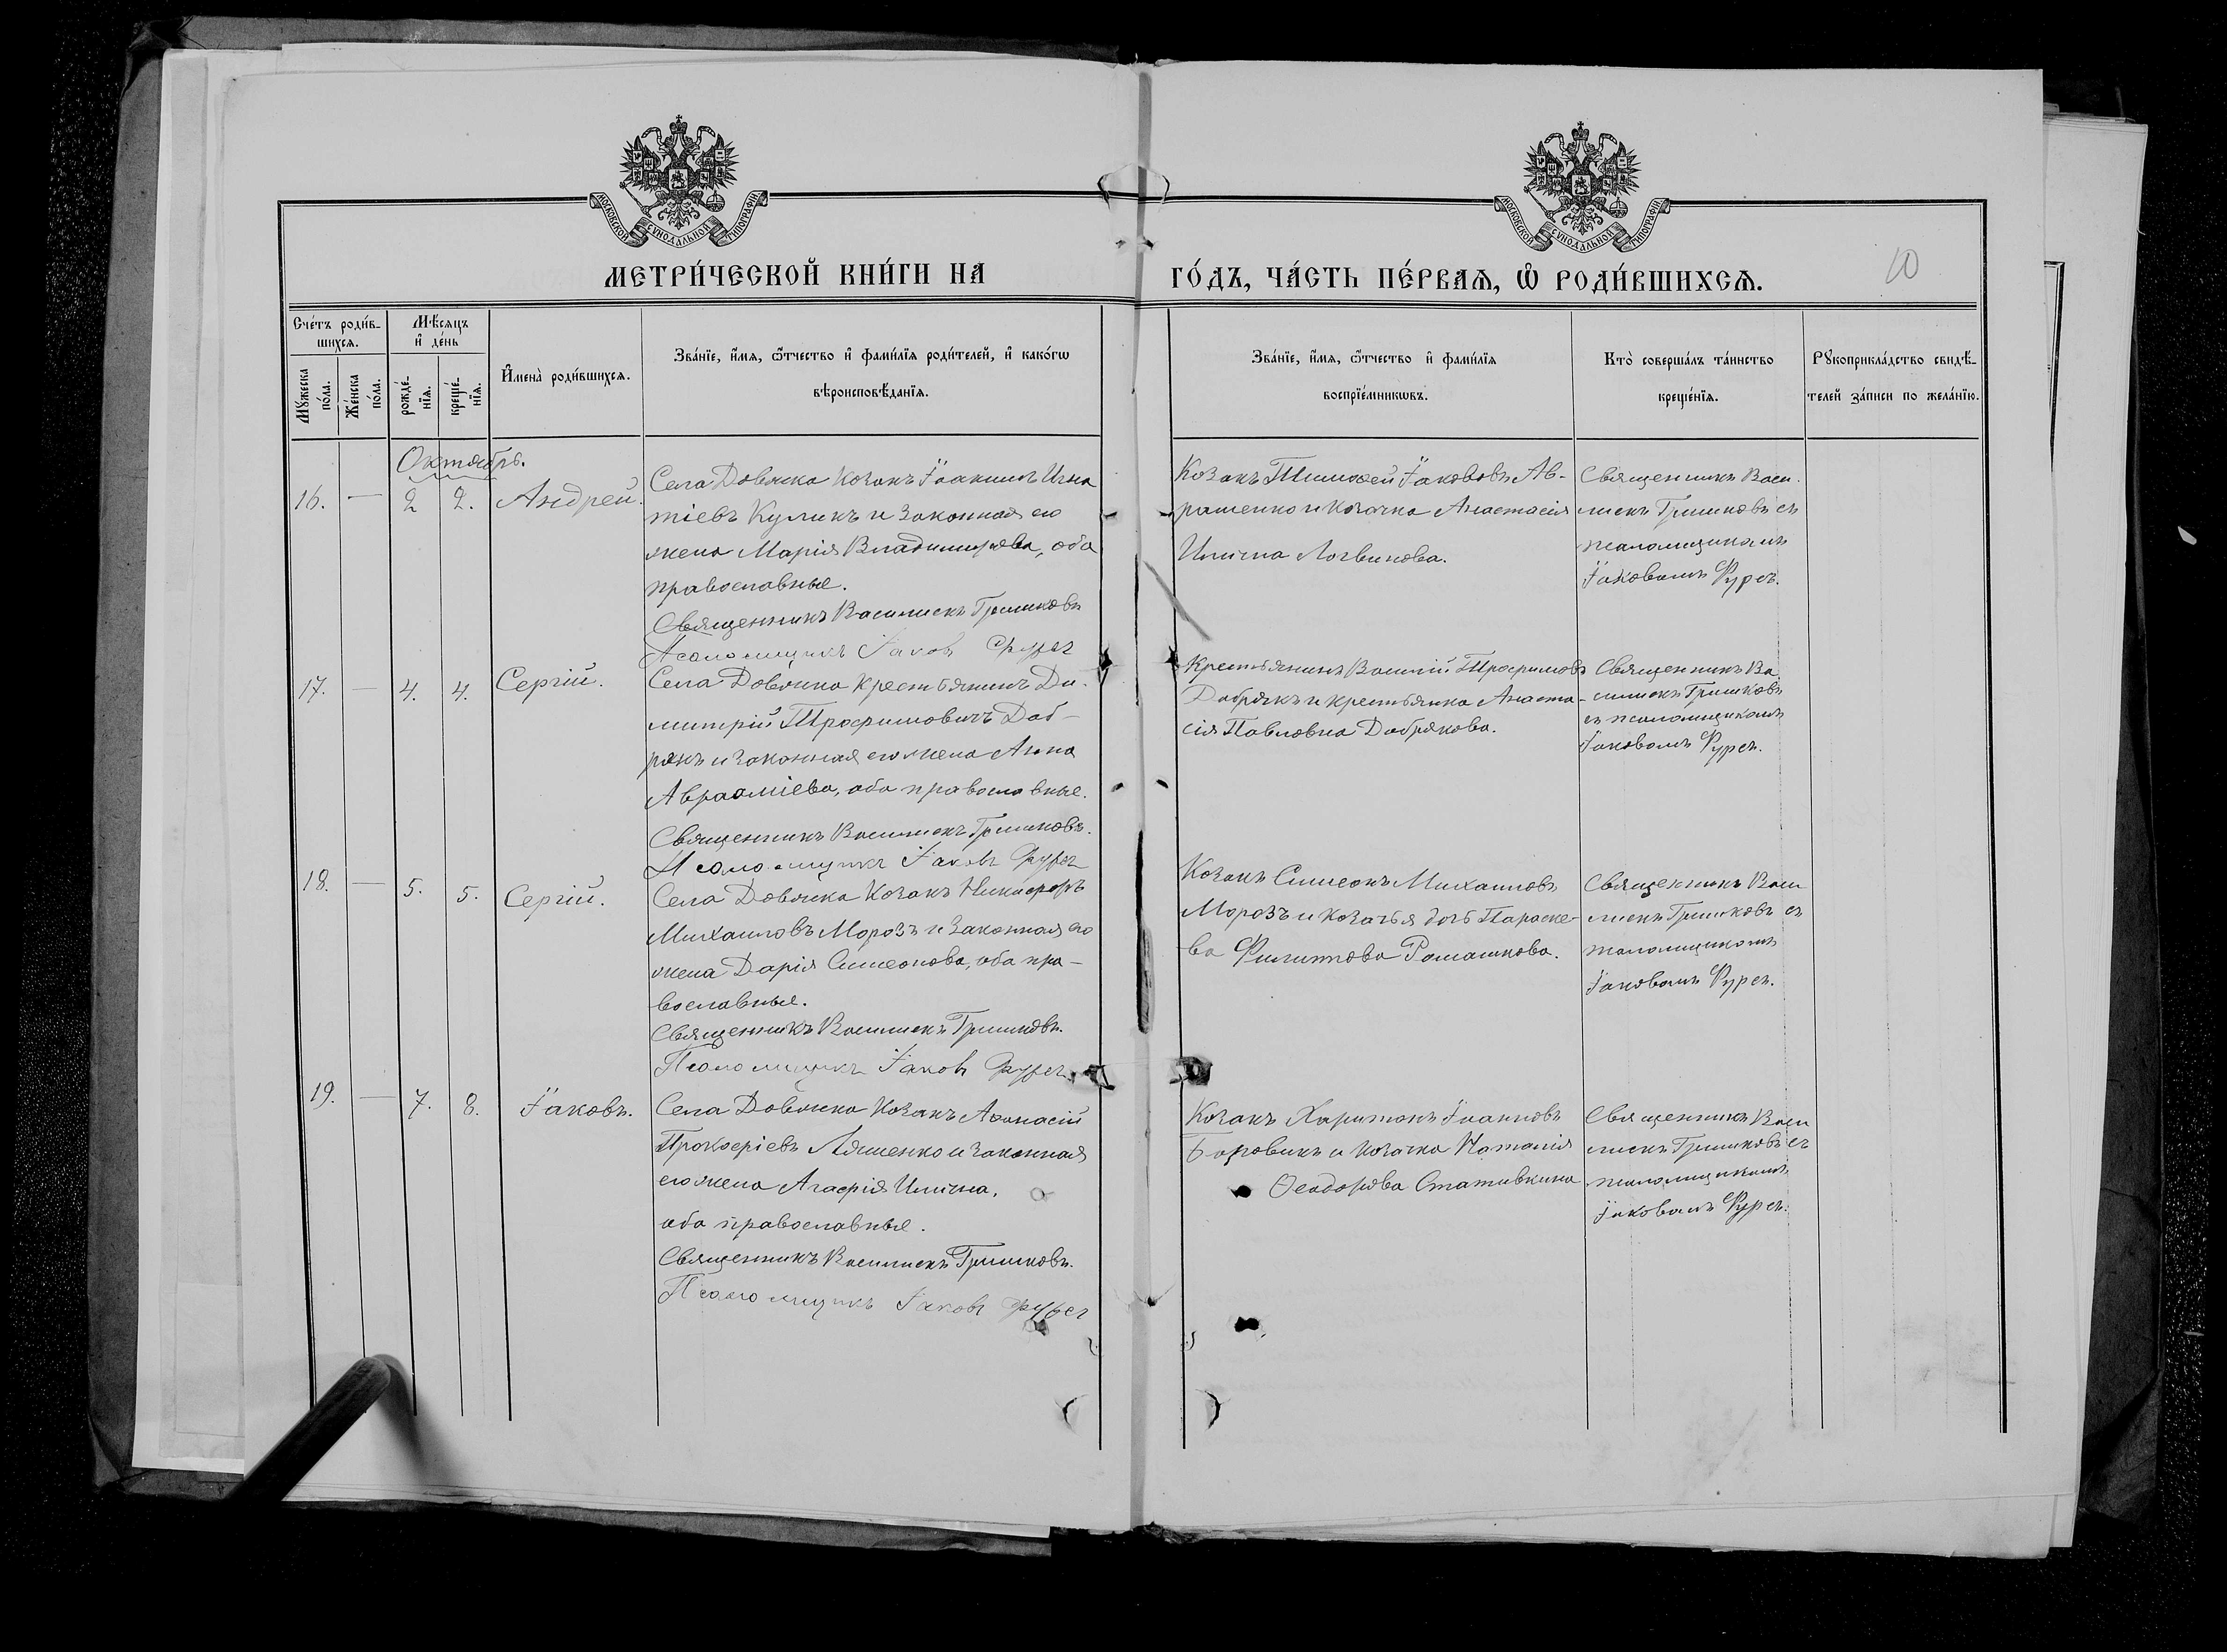 МОСКОВСКОЙ СѴНОДАЛЬНОЙ ТИПОГРАФІИ
МОСКОВСКОЙ СѴНОДАЛЬНОЙ ТИПОГРАФІИ
МЕТРИ́ЧЕСКОЙ КНИ́ГИ НА
ГО́ДЪ, ЧА́СТЬ ПЕ́РВАѦ, Ѡ҆ РОДИ́ВШИХСѦ.
10
Сче́тъ роди́в-
шихсѧ.
Мꙋ́жеска
по́ла.
Же́нска
по́ла.
Мѣ́сѧцъ
и҆ де́нь
рожде́-
нїѧ.
креще́-
нїѧ.
И҆мена̀ роди́вшихсѧ.
Зва́нїе, и҆́мѧ, ѻ҆́тчество и҆ фами́лїѧ роди́телей, и҆ како́гѡ
вѣроисповѣ́данїѧ.
Зва́нїе, и҆́мѧ, ѻ҆́тчество и҆ фами́лїѧ
воспрїе́мникѡвъ.
Кто̀ соверша́лъ та́инство
креще́нїѧ.
Рꙋкоприкла́дство свидѣ́-
телей за́писи по жела́нїю.
Октябрь.
16. — 2 2. Андрей.
Села Довжика козакъ Іоакимъ Игна
тіевъ Куликъ и законная его
жена Марія Владимирова, оба
православные.
Священникъ Василискъ Гришковъ
Псаломщикъ Іаковъ Фурса
Козакъ Тимофей Іаковъ Ав-
раменко и козачка Анастасія
Иліина Логвинова.
Священникъ Васи-
лискъ Гришковъ съ
псаломщикомъ
Іаковомъ Фурса.
17. — 4. 4. Сергій.
Села Довжика крестьянинъ Ди-
митрій Трофимовичъ Доб-
рякъ и законная его жена Анна
Авраамiева, оба православные.
Священникъ Василискъ Гришковъ.
Псаломщикъ Іаковъ Фурса
Крестьянинъ Василій Трофимовъ
Добрякъ и крестьянка Анаста-
сія Павловна Добрякова.
Священникъ Ва
силискъ Гришковъ
съ псаломщикомъ
Іаковомъ Фурса.
18. — 5. 5. Сергій.
Села Довжика козакъ Никифоръ
Михаиловъ Морозъ и законная его
жена Дарія Симеонова, оба пра-
вославные.
Священникъ Василискъ Гришковъ.
Псаломщикъ Іаковъ Фурса
Козакъ Симеонъ Михаиловъ
Морозъ и козачья дочь Параске-
ва Филиппова Ромашкова.
Священникъ Васи
лискъ Гришковъ съ
псаломщикомъ
Іаковомъ Фурса.
19. — 7. 8. Іаковъ.
Села Довжика козакъ Аѳанасій
Прокофіевъ Ляшенко и законная
его жена Агафія Иліина,
оба православные.
Священникъ Василискъ Гришковъ.
Псаломщикъ Іаковъ Фурса
Козакъ Харитонъ Іоанновъ
Боровикъ и козачка Наталія
Ѳеодорова Стативкина
Священникъ Васи
лискъ Гришковъ съ
псаломщикомъ
Іаковомъ Фурса.